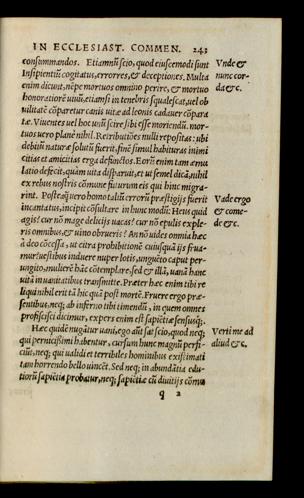 IN ECCLESIAST. COMMEN. 243
consummandos. Etiamnū scio, quod eiuscemodi sunt
Insipientiū cogitatus, errores, & deceptiones. Multa
enim dicunt, nēpe mortuos omnino perire, & mortuo
honoratiorē uiuū, etiamsi in tenebris squalescat, uel ob
uilitatē cōparetur canis uitæ ad leonis cadauer cōpara
tæ. Viuentes uel hoc unū scire sibi esse moriendū. mor-
tuos uero planè nihil. Retributiōes nulli repositas: ubi
debitū naturæ solutū fuerit, finē simul habituras inimi
citias et amicitias erga defunctos. Eorū enim tam æmu
latio defecit, quàm uita disparuit, et ut semel dicā, nihil
ex rebus nostris cōmune futurum eis qui hinc migra-
rint. Postea quero homo talium errorū præstigijs fuerit
incantatus, incipit cōsultare in hunc modū: Heus quid
agis? cur nō mage delicijs uacas? cur nō epulis exple-
ris omnibus, & uino obrueris? An nō uides omnia hæc
à deo cōcessa, ut citra prohibitionē cuiusquā ijs frua-
mur? uestibus induere nuper lotis, unguēto caput per-
ungito, mulierē hāc cōtemplare, sed & illā, uanā hanc
uitā in uanitatibus transmitte. Præter hæc enim tibi re
liqui nihil erit tā hic quā post mortē. Fruere ergo præ-
sentibus, neq; ab inferno tibi timendū, in quem omnes
proficisci dicimur, expers enim est sapiētiæ sensusq;.
Hæc quidē nugātur uani, ego aūt sat scio, quod neq;
qui pernicissimi habentur, cursum hunc magnū perfi-
ciūt, neq; qui ualidi et terribiles hominibus existimati
tam horrendo bello uincēt. Sed neq; in abundātia edu-
liorū sapiētia probatur, neq; sapiētiæ cū diuitijs cōmu
q 2
Vnde &
nunc cor-
da &c.
Vade ergo
& come-
de &c.
Verti me ad
aliud &c.